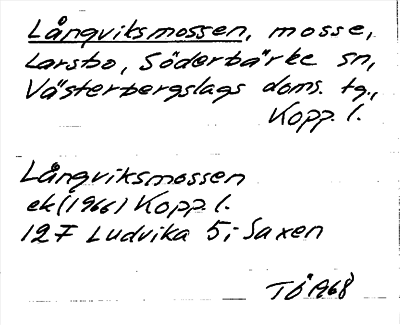 Långviksmossen, mosse,
Larsbo, Söderbärke sn,
Västerbergslags doms. tg.,
Kopp. l.
Långviksmossen
ek (1966) Kopp. l.
12 F Ludvika 5; Saxen
TÖ A68